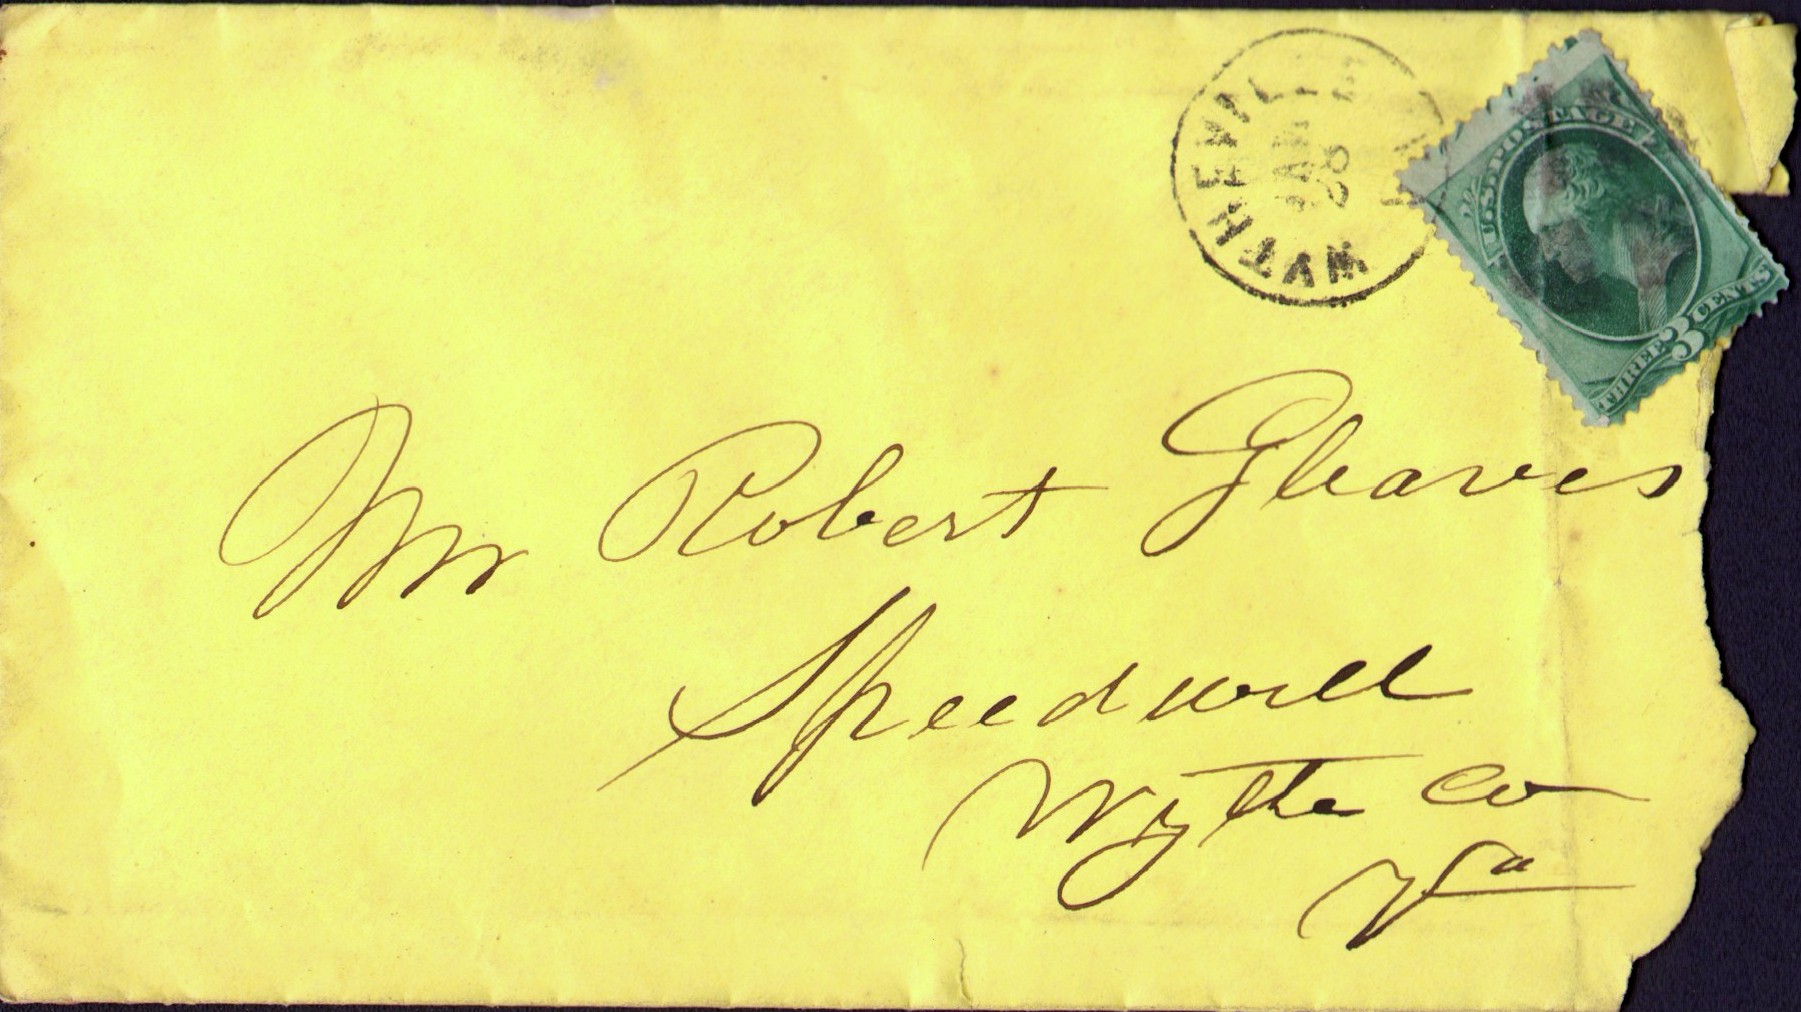 WYTHEVILLE
JAN
28
U.S. POSTAGE
THREE 3 CENTS
Mr Robert Gleaves
Speedwell
Wythe Co
Va